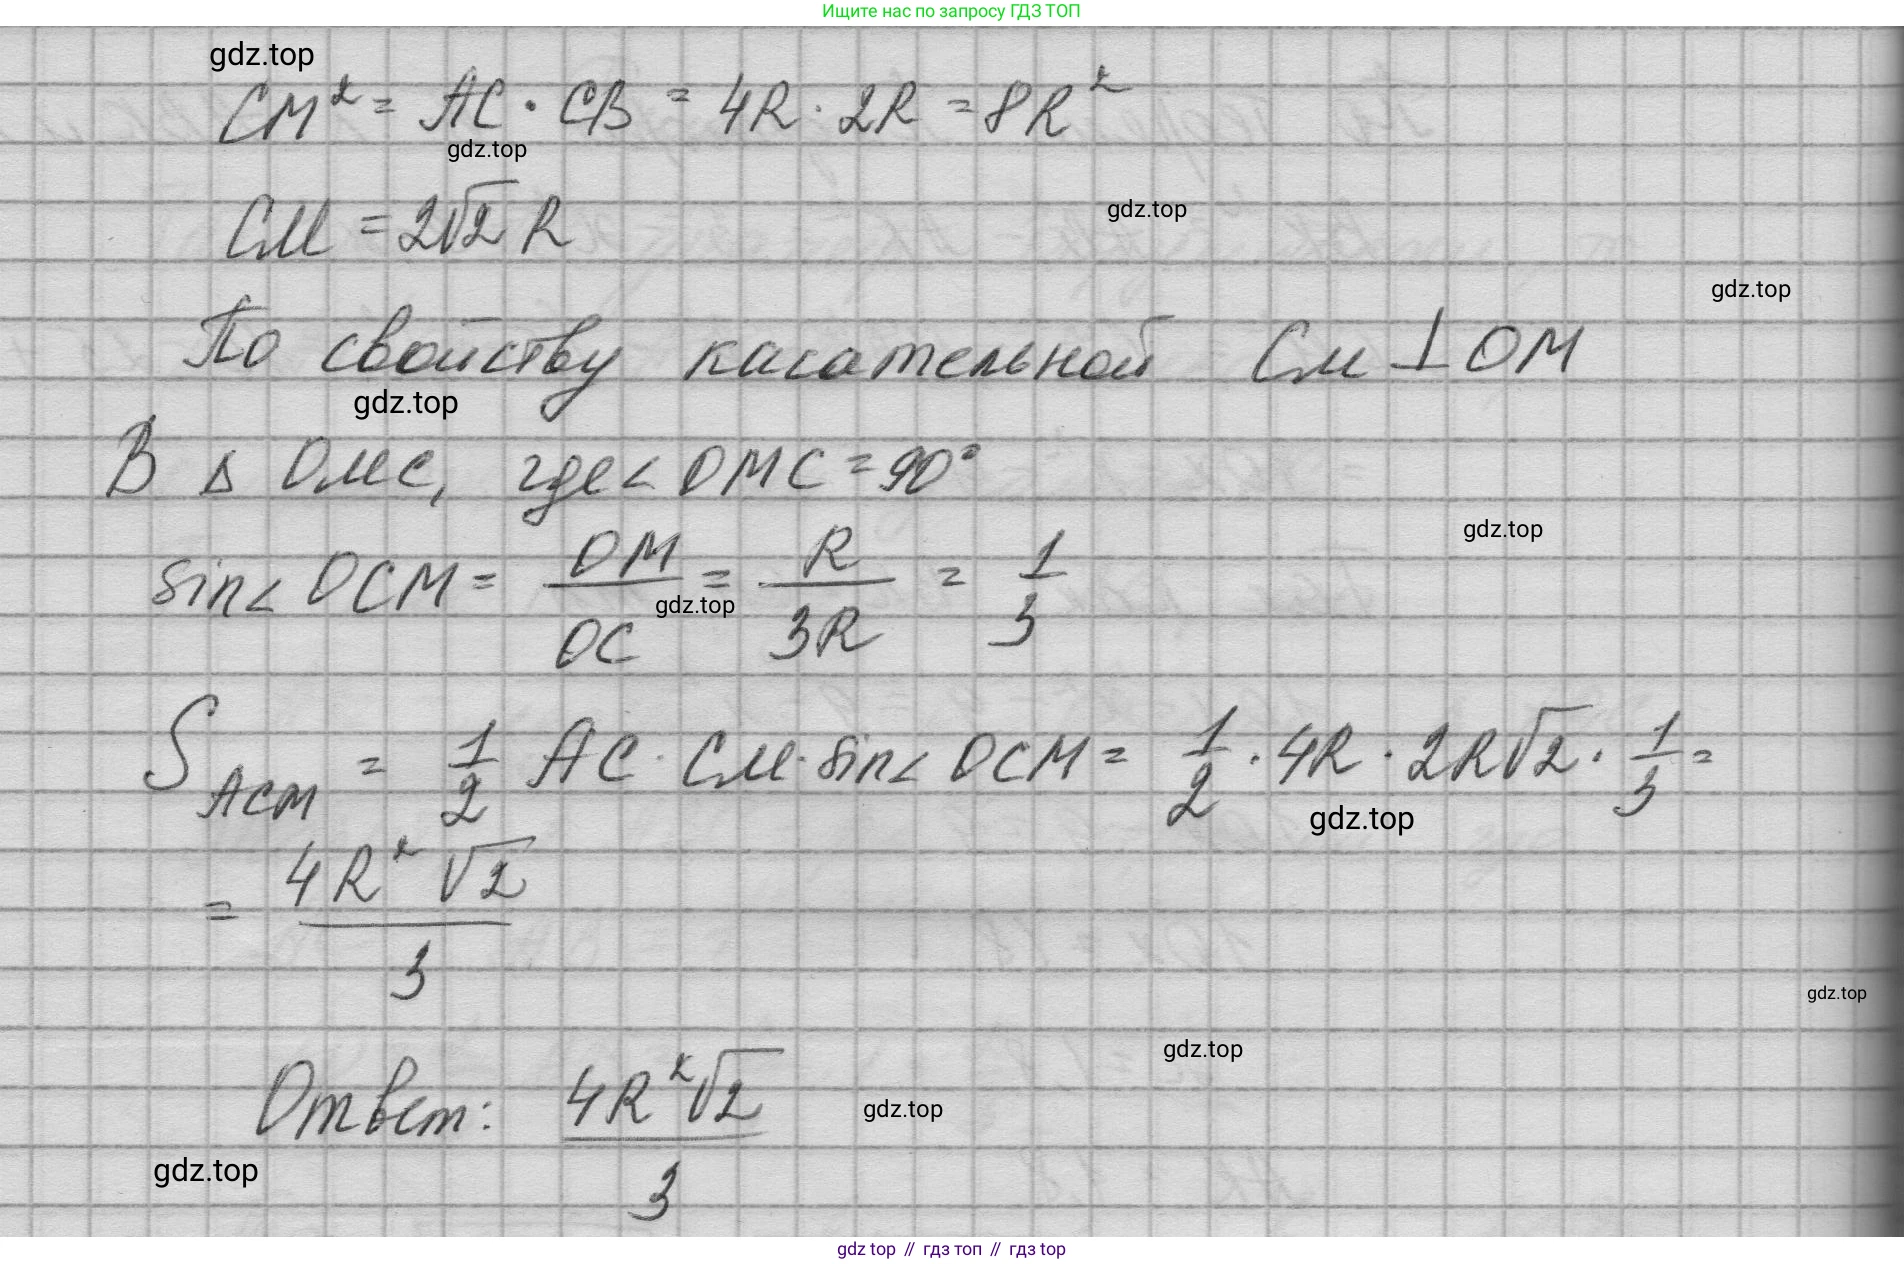 Ищите нас по запросу ГДЗ ТОП
gdz.top
CM² = AC · CB = 4R · 2R = 8R²
gdz.top
CM = 2√2 R
gdz.top
gdz.top
По свойству касательной CM ⊥ OM
gdz.top
В Δ OMC, где < OMC = 90°
gdz.top
sin< OCM = OM/OC = R/3R = 1/3
gdz.top
S_ACM = 1/2 AC · CM · sin< OCM = 1/2 · 4R · 2R√2 · 1/3 =
gdz.top
= 4R²√2/3
gdz.top
gdz.top
Ответ: 4R²√2/3
gdz.top
gdz.top
gdz top // гдз топ // гдз top